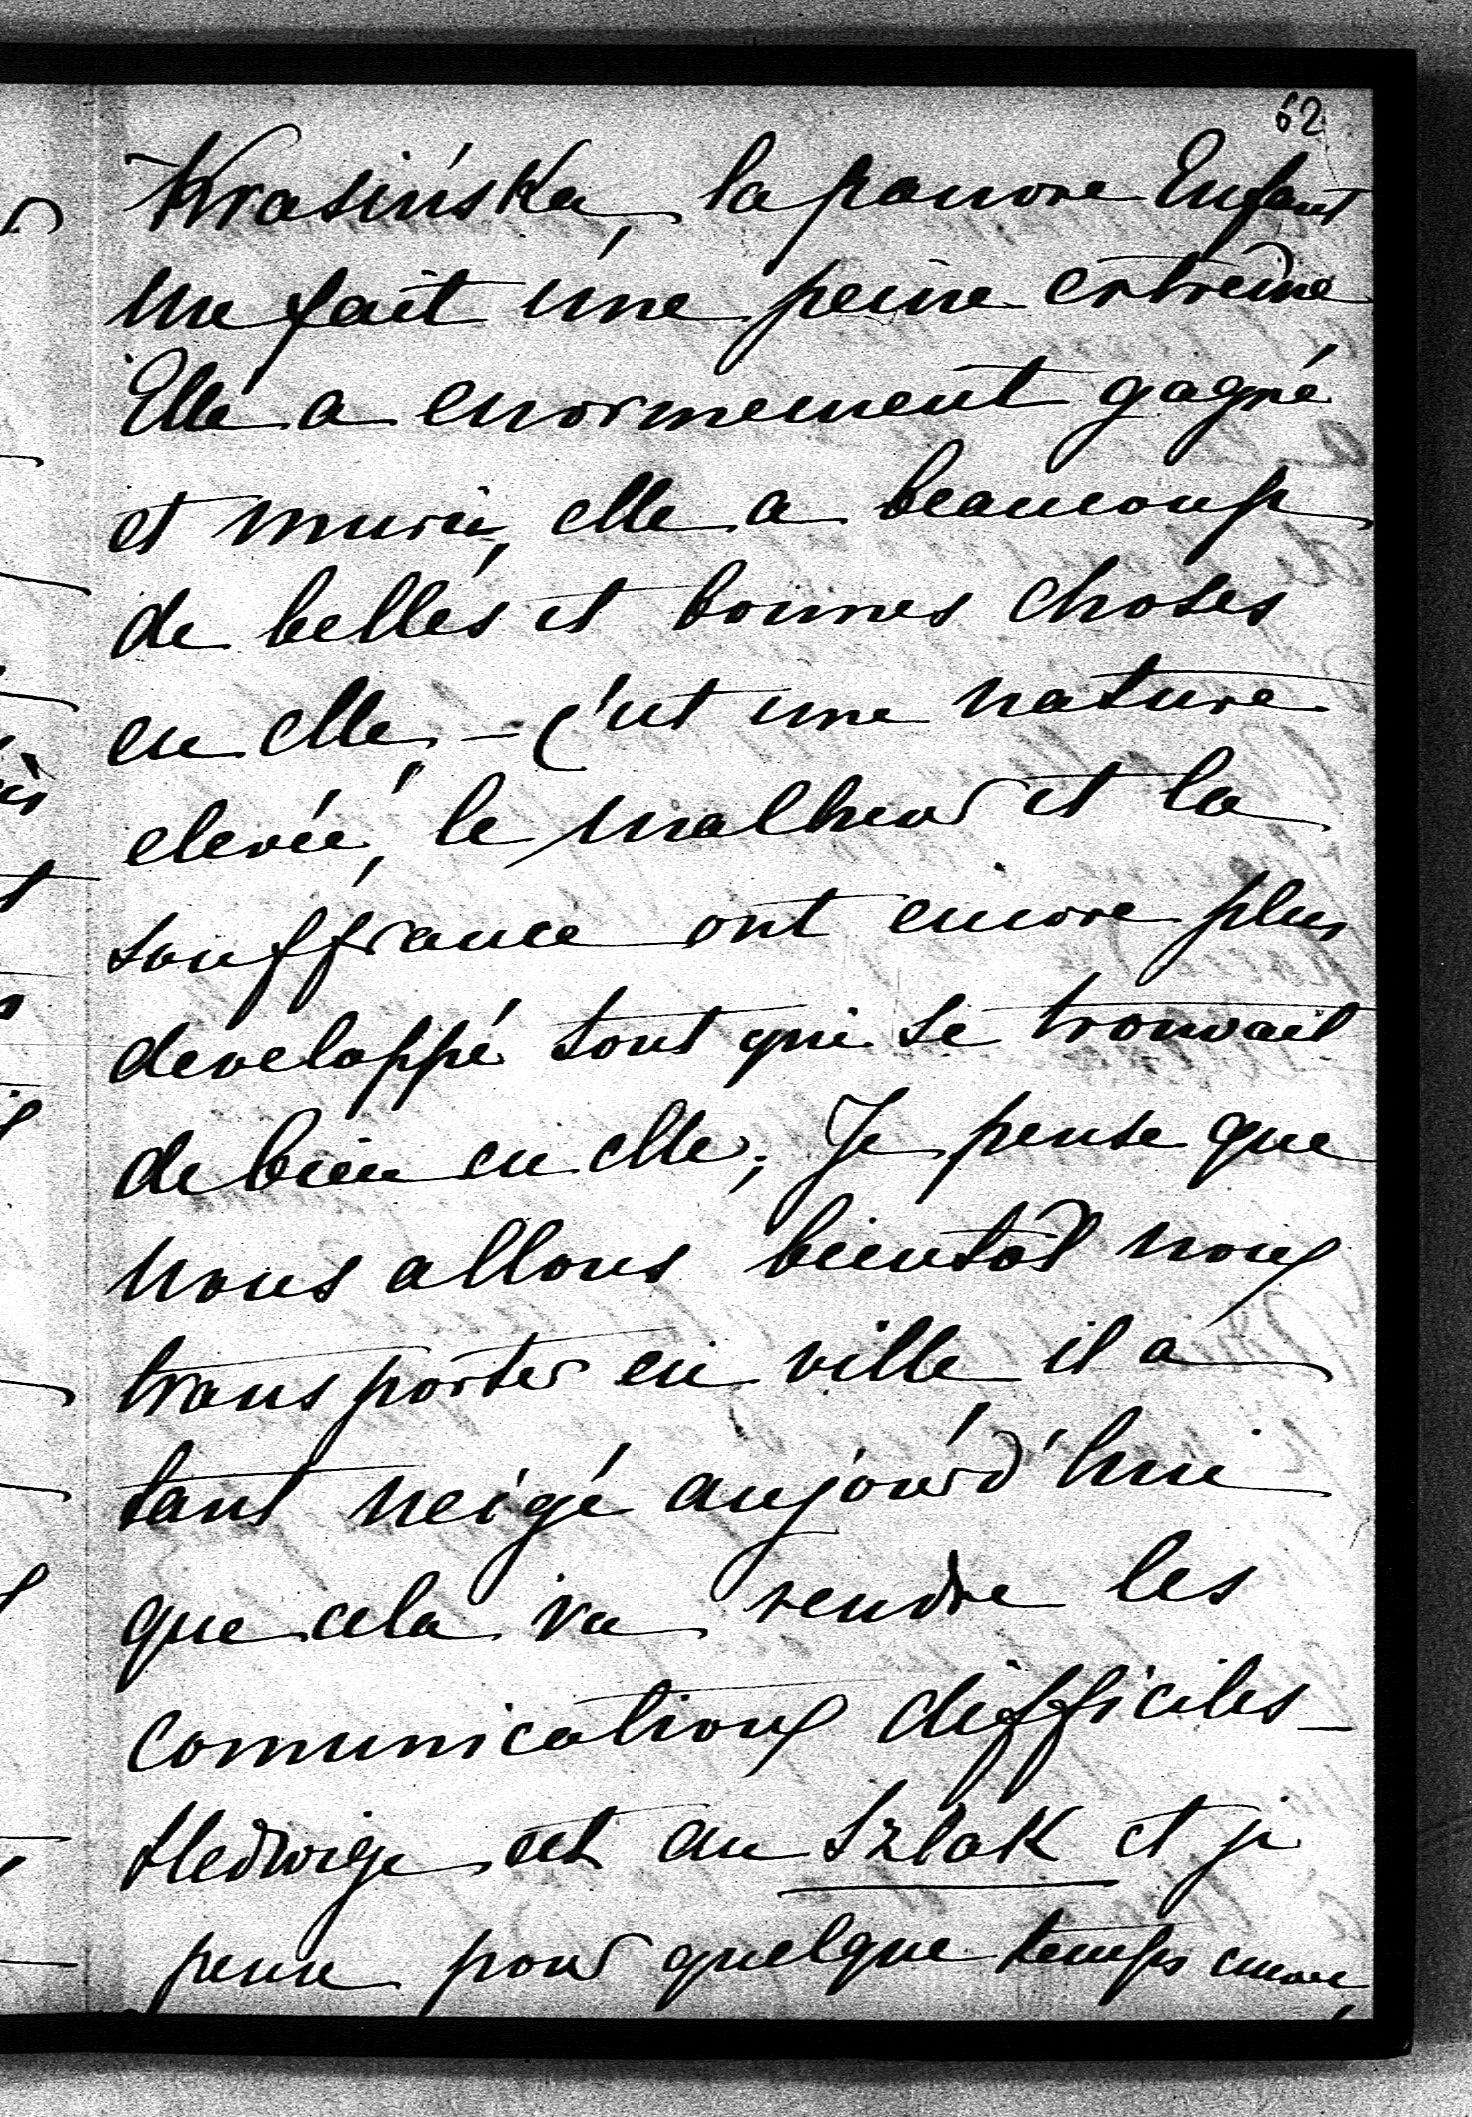 62
Krasińska, la pauvre Enfant
me fait une peine extrême
Elle a enormement gagné
et muri, elle a beaucoup
de belles et bonnes choses
en elle, – c'est une nature
elevée, le malheur et la
souffrance ont encore plus
developpé tout qui se trouvait
de bien en elle; Je pense que
nous allons bientôt nous
transporter en ville il a
tant neigé aujourd'hui
que cela va rendre les
comunications difficiles –
Hedwige est au Szlak et je
pense pour quelque temps encore